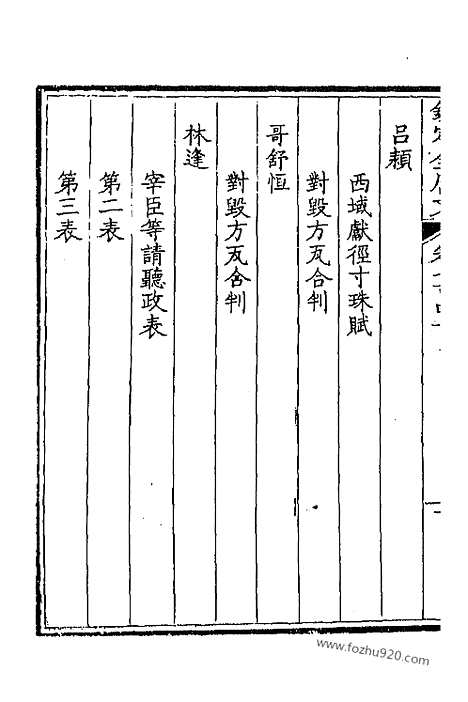 呂頲
西域獻徑寸珠賦
對毀方瓦合判
哥舒恒
對毀方瓦合判
林逢
宰臣等請聽政表
第二表
第三表
www.fozhu920.com